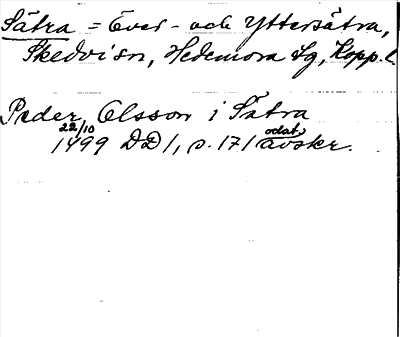 Sätra = Över- och Yttersätra,
Skedvi sn, Hedemora tg, Kopp. l.
Peder Olsson i Sätra
22/10 1499 DD 1, s. 171 odat. avskr.